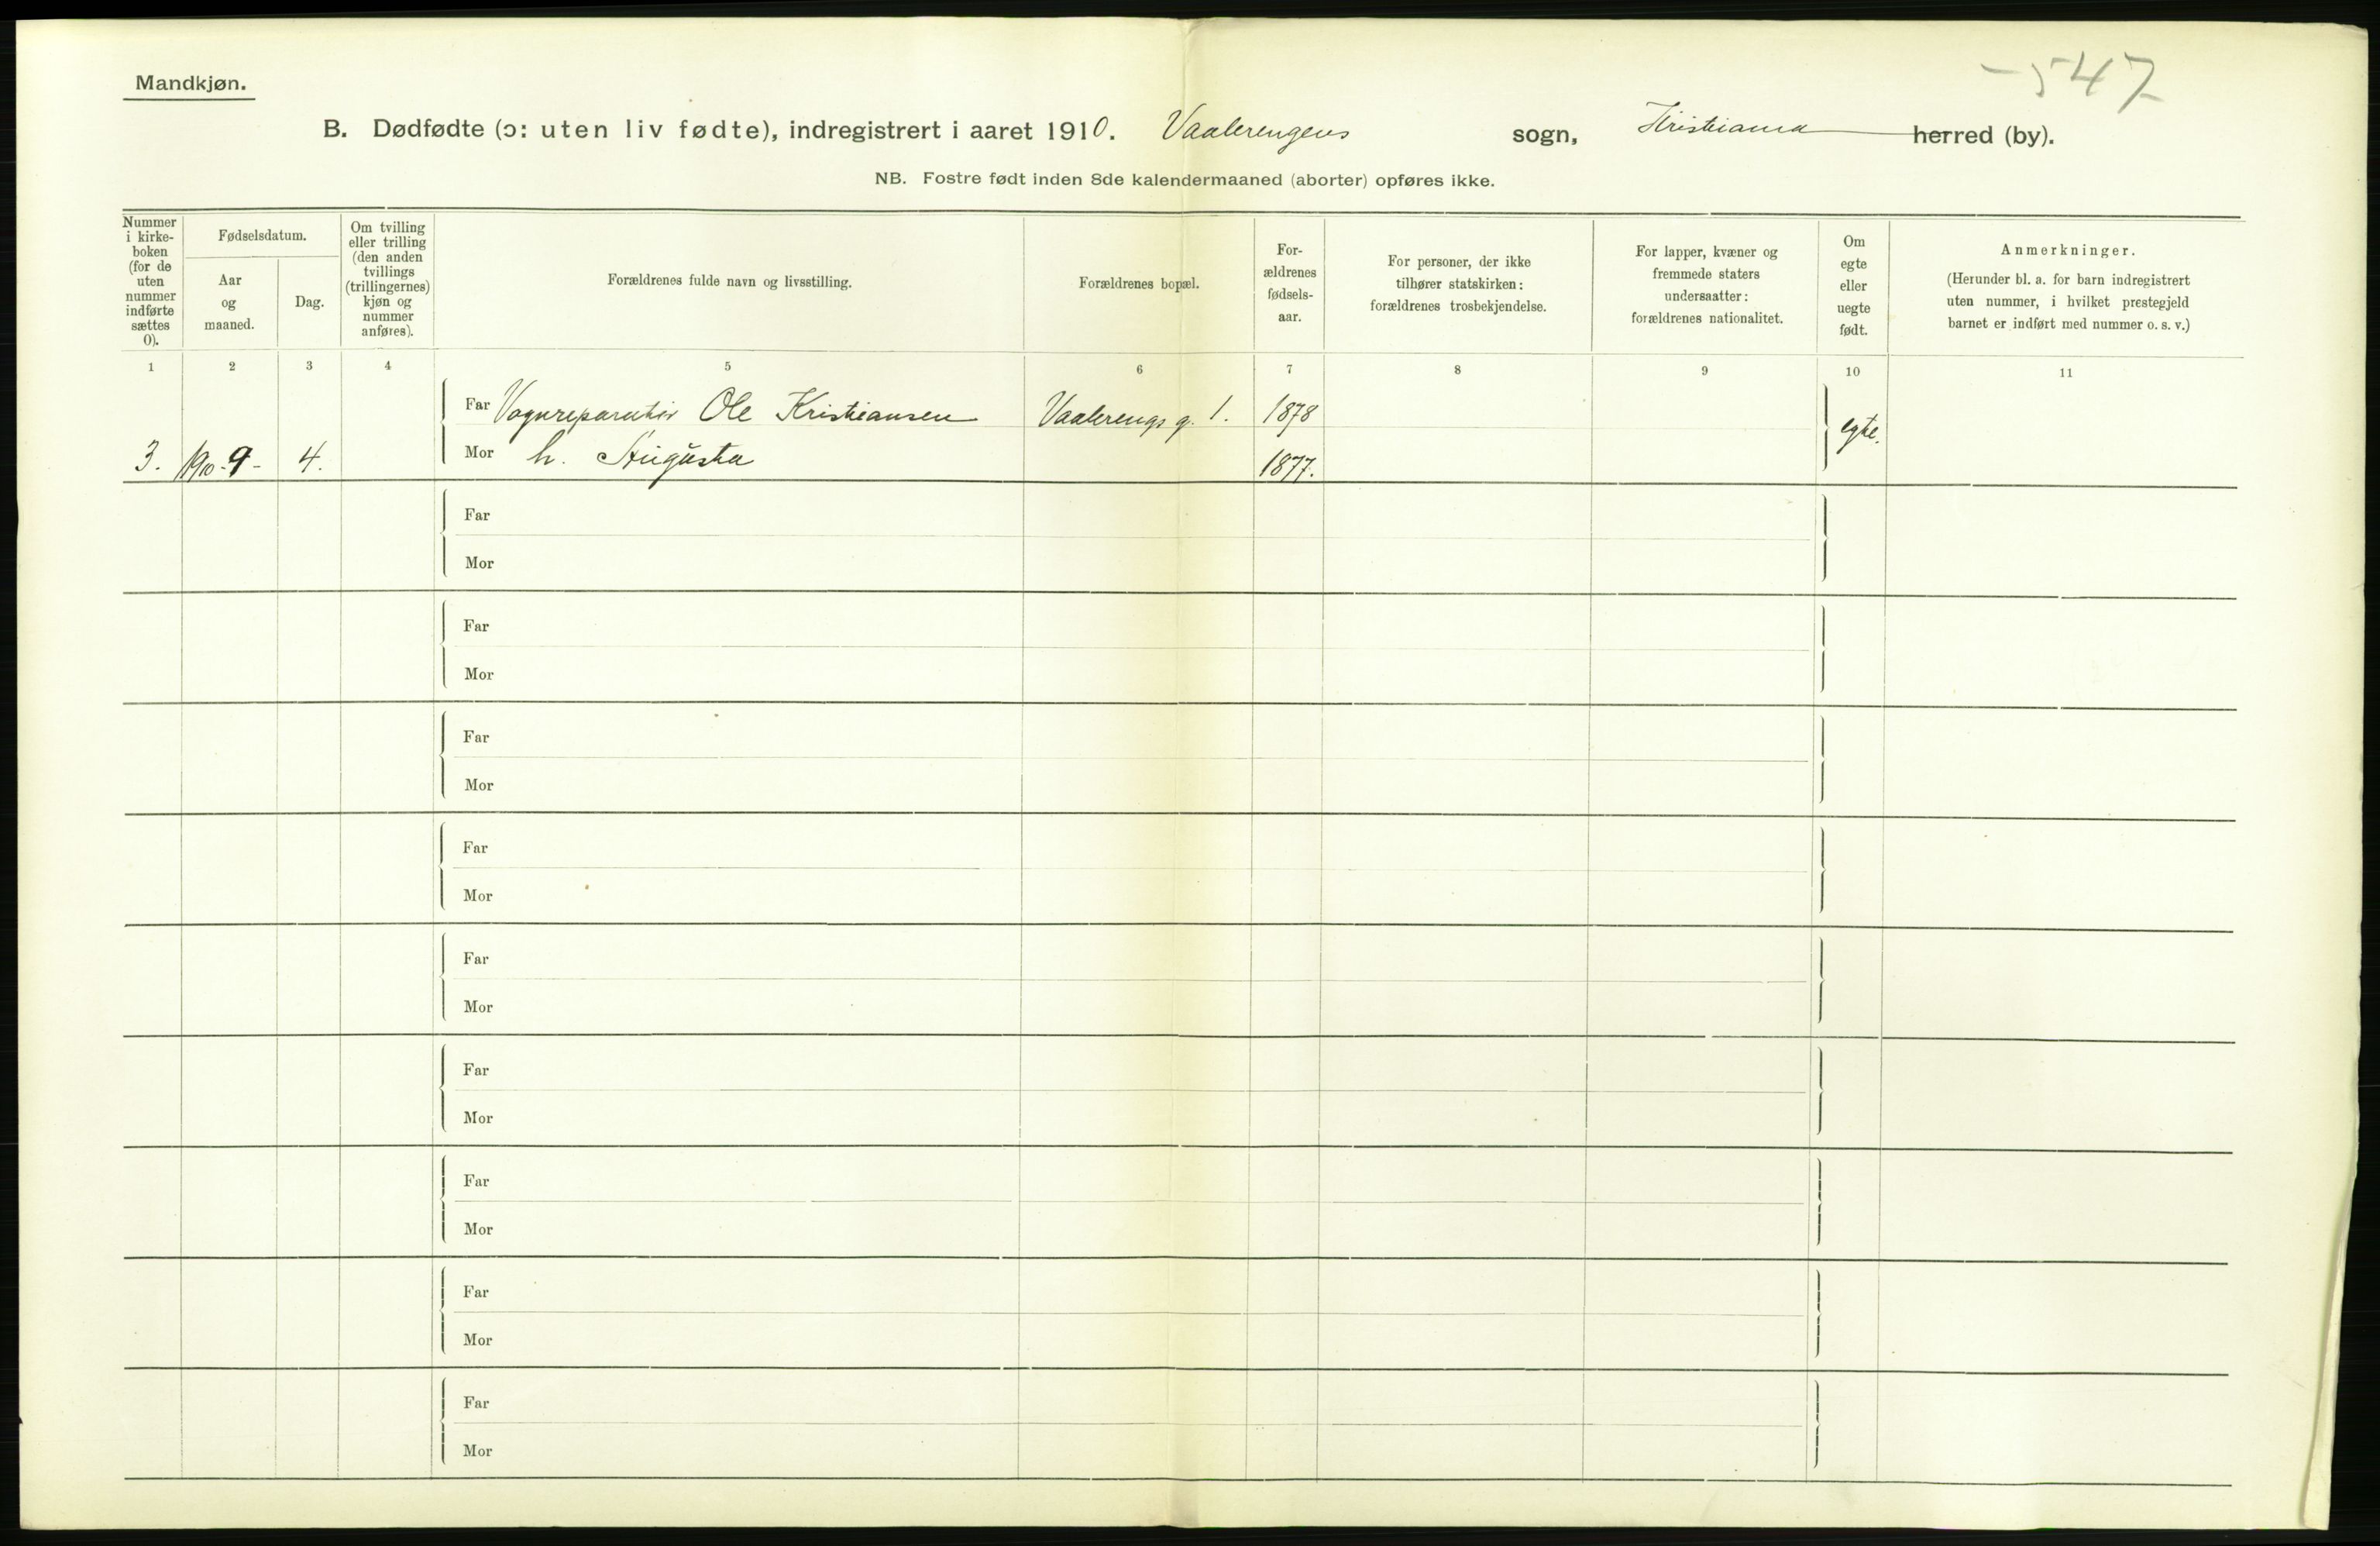 -547
Mandkjøn.
B. Dødfødte (ɔ: uten liv fødte), indregistrert i aaret 1910. Vaalerengens sogn, Kristiania herred (by).
NB. Fostre født inden 8de kalendermaaned (aborter) opføres ikke.
Nummer
i kirke-
boken
(for de
uten
nummer
indførte
sættes
0).
Fødselsdatum.
Aar
og
maaned.
Dag.
Om tvilling
eller trilling
(den anden
tvillings
(trillingernes)
kjøn og
nummer
anføres).
Forældrenes fulde navn og livsstilling.
Forældrenes bopæl.
For-
ældrenes
fødsels-
aar.
For personer, der ikke
tilhører statskirken:
forældrenes trosbekjendelse.
For lapper, kvæner og
fremmede staters
undersaatter:
forældrenes nationalitet.
Om
egte
eller
uegte
født.
Anmerkninger.
(Herunder bl. a. for barn indregistrert
uten nummer, i hvilket prestegjeld
barnet er indført med nummer o. s. v.)
1 2 3 4 5 6 7 8 9 10 11
Far Vognreparatør Ole Kristiansen Vaalerengs g. 1. 1878
egte.
3. 1910-9- 4. Mor h. Augusta 1877.
Far
Mor
Far
Mor
Far
Mor
Far
Mor
Far
Mor
Far
Mor
Far
Mor
Far
Mor
Far
Mor